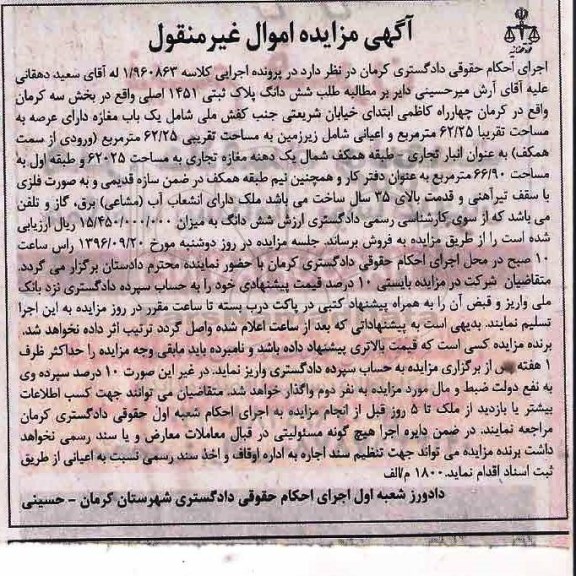 آگهی مزایده اموال غیرمنقول
اجرای احکام حقوقی دادگستری کرمان در نظر دارد در پرونده اجرایی کلاسه ۱/۹۶۰۸۶۳ له آقای سعید دهقانی
علیه آقای آرش میرحسینی دایر بر مطالبه طلب شش دانگ پلاک ثبتی ۱۴۵۱ اصلی واقع در بخش سه کرمان
واقع در کرمان چهارراه کاظمی ابتدای خیابان شریعتی جنب کفش ملی شامل یک باب مغازه دارای عرصه به
مساحت تقریبا ۶۲/۲۵ مترمربع و اعیانی شامل زیرزمین به مساحت تقریبی ۶۲/۲۵ مترمربع (ورودی از سمت
همکف) به عنوان انبار تجاری - طبقه همکف شمال یک دهنه مغازه تجاری به مساحت ۶۲۰۲۵ و طبقه اول به
مساحت ۶۶/۹۰ مترمربع به عنوان دفتر کار و همچنین نیم طبقه همکف در ضمن سازه قدیمی و به صورت فلزی
با سقف تیرآهنی و قدمت بالای ۳۵ سال ساخت می باشد ملک دارای انشعاب آب (مشاعی) برق، گاز و تلفن
می باشد که از سوی کارشناسی رسمی دادگستری ارزش شش دانگ به میزان ۱۵/۴۵۰/۰۰۰/۰۰۰ ریال ارزیابی
شده است را از طریق مزایده به فروش برساند. جلسه مزایده در روز دوشنبه مورخ ۱۳۹۶/۰۹/۲۰ راس ساعت
۱۰ صبح در محل اجرای احکام حقوقی دادگستری کرمان با حضور نماینده محترم دادستان برگزار می گردد.
متقاضیان شرکت در مزایده بایستی ۱۰ درصد قیمت پیشنهادی خود را به حساب سپرده دادگستری نزد بانک
ملی واریز و قبض آن را به همراه پیشنهاد کتبی در پاکت درب بسته تا ساعت مقرر در روز مزایده به این اجرا
تسلیم نمایند. بدیهی است به پیشنهاداتی که بعد از ساعت اعلام شده واصل گردد ترتیب اثر داده نخواهد شد.
برنده مزایده کسی است که قیمت بالاتری پیشنهاد داده باشد و نامبرده باید مابقی وجه مزایده را حداکثر ظرف
۱ هفته پس از برگزاری مزایده به حساب سپرده دادگستری واریز نماید. در غیر این صورت ۱۰ درصد سپرده وی
به نفع دولت ضبط و مال مورد مزایده به نفر دوم واگذار خواهد شد. متقاضیان می توانند جهت کسب اطلاعات
بیشتر یا بازدید از ملک تا ۵ روز قبل از انجام مزایده به اجرای احکام شعبه اول حقوقی دادگستری کرمان
مراجعه نمایند. در ضمن دایره اجرا هیچ گونه مسئولیتی در قبال معاملات معارض و یا سند رسمی نخواهد
داشت برنده مزایده می تواند جهت تنظیم سند اجاره به اداره اوقاف و اخذ سند رسمی نسبت به اعیانی از طریق
ثبت اسناد اقدام نماید.۱۸۰۰ م/الف
دادورز شعبه اول اجرای احکام حقوقی دادگستری شهرستان کرمان - حسینی